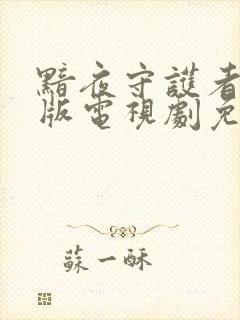 黯夜守護者
版電視劇免
蘇一酥